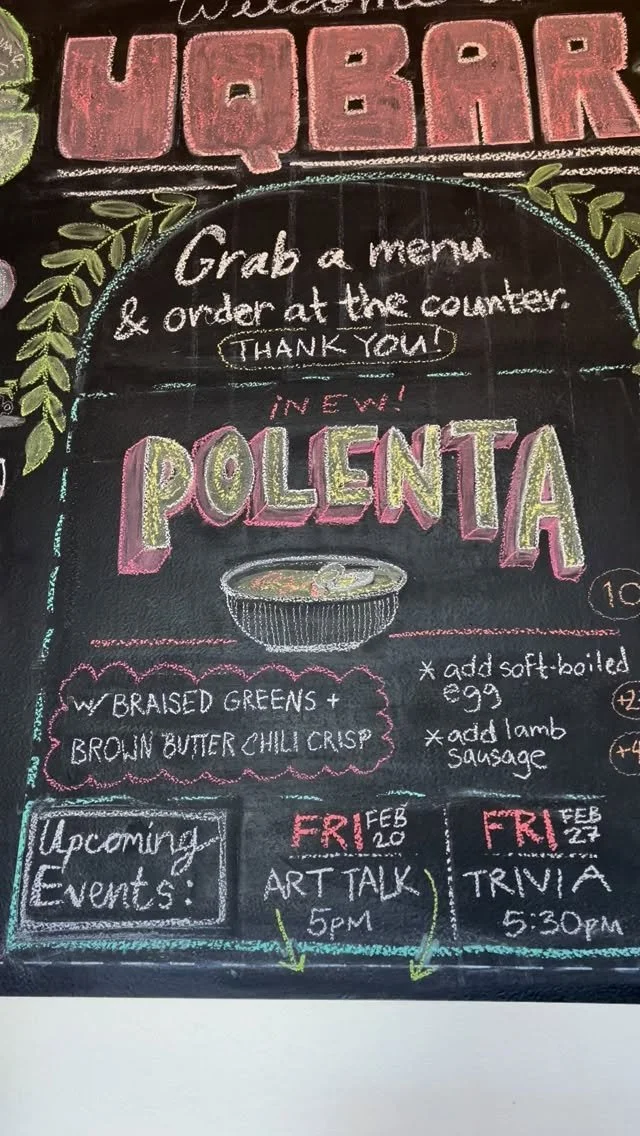 Welcome
UQBAR
Grab a menu
& order at the counter.
THANK YOU!
¡NEW!
POLENTA
10
w/ BRAISED GREENS +
BROWN BUTTER CHILI CRISP
* add soft-boiled
egg +2
* add lamb
sausage +4
Upcoming
Events:
FRI FEB
20
ART TALK
5PM
FRI FEB
27
TRIVIA
5:30PM